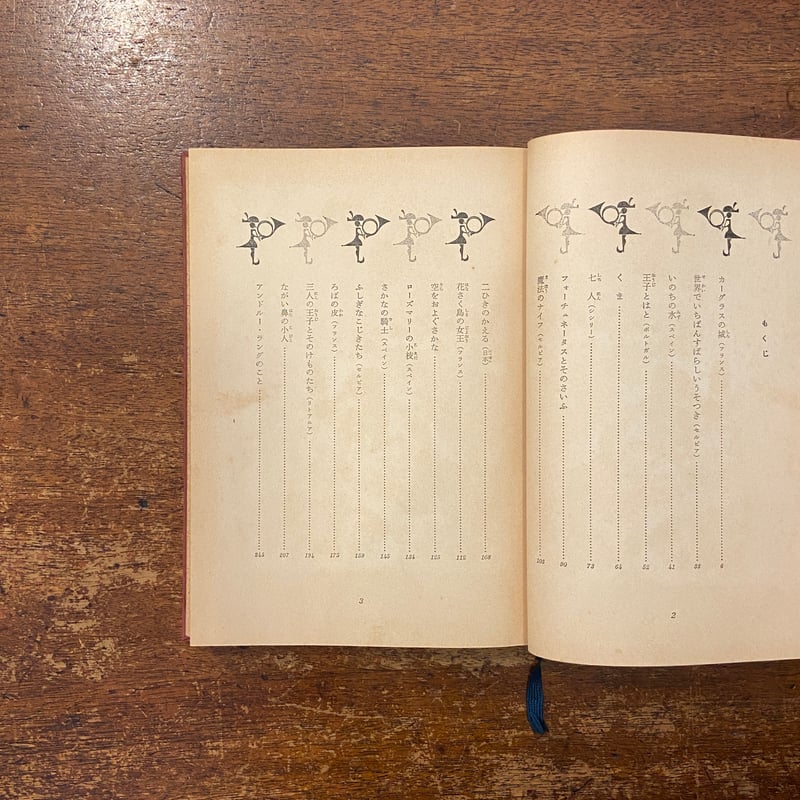 もくじ
カーグラスの城（フランス）……6
世界でいちばんすばらしいうそつき（セルビア）……33
いのちの水（スペイン）……41
王子とはと（ポルトガル）……52
くま……64
七人（シシリー）……73
フォーチュネータスとそのさいふ……90
魔法のナイフ（セルビア）……102
2
二ひきのかえる（日本）……108
花さく島の女王（フランス）……112
空をおよぐさかな……125
ローズマリーの小枝（スペイン）……134
さかなの騎士（スペイン）……145
ふしぎなこじきたち（セルビア）……159
ろばの皮（フランス）……175
三人の王子とそのけものたち（リトアニア）……194
ながい鼻の小人……207
アンドルー・ラングのこと……245
3